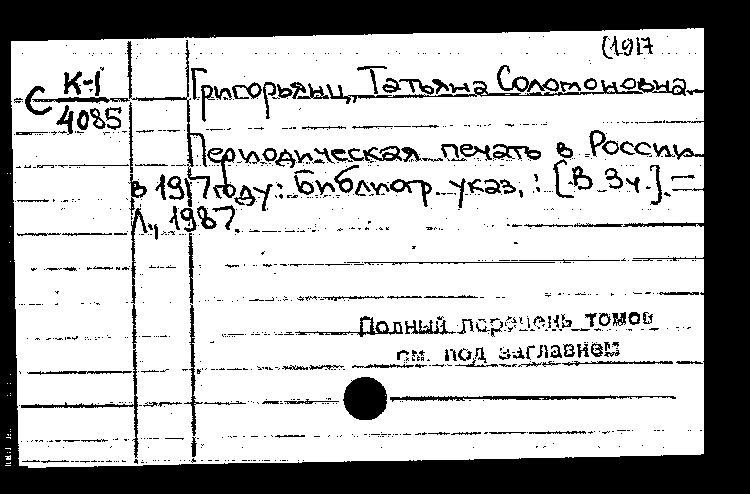 (1917
С К-1
4085
Григорьянц, Татьяна Соломоновна.
Периодическая печать в России
в 1917 году: Библиогр. указ. : [В 3ч.]. –
Л., 1987.
Полный перечень томов
см. под заглавием